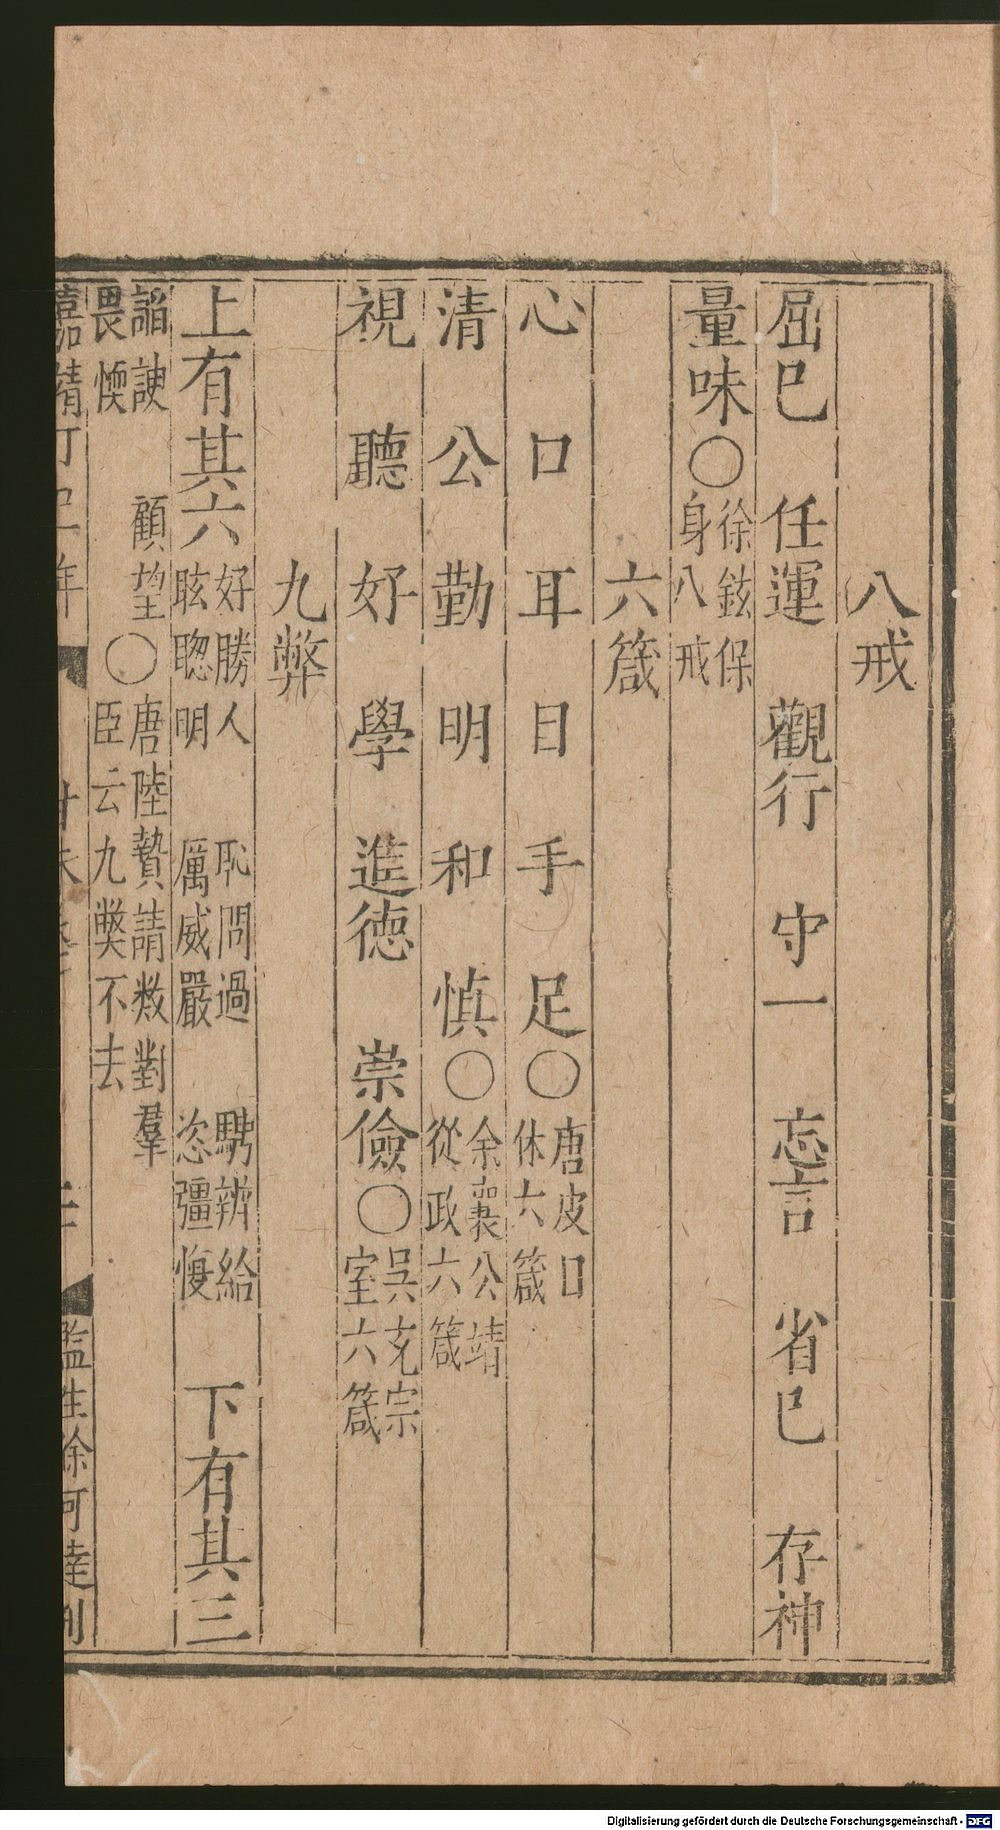 八戒
屈巳 任運 觀行 守一 忘言 省巳 存神
量味〇徐鉉保身八戒
六箴
心 口 耳 目 手 足〇唐皮日休六箴
清 公 勤 明 和 慎〇余襄公靖從政六箴
視 聽 好 學 進德 崇儉〇吳玄宗室六箴
九弊
上有其六好勝人 恥問過 騁辨給眩聰明 厲威嚴 恣彊愎 下有其三
諂諛 顧望畏愞〇唐陸贄請數對羣臣云九獘不去
嘉靖丁巳年 二 監生徐河達刊
Digitalisierung gefördert durch die Deutsche Forschungsgemeinschaft - DFG